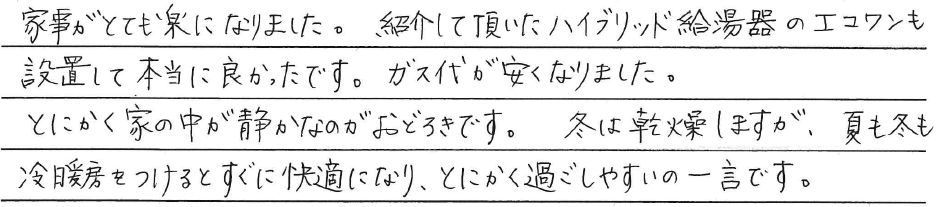 家事がとても楽になりました。 紹介して頂いたハイブリッド給湯器のエコワンも
設置して本当に良かったです。 ガス代が安くなりました。
とにかく家の中が静かなのがおどろきです。 冬は乾燥しますが、夏も冬も
冷暖房をつけるとすぐに快適になり、とにかく過ごしやすいの一言です。